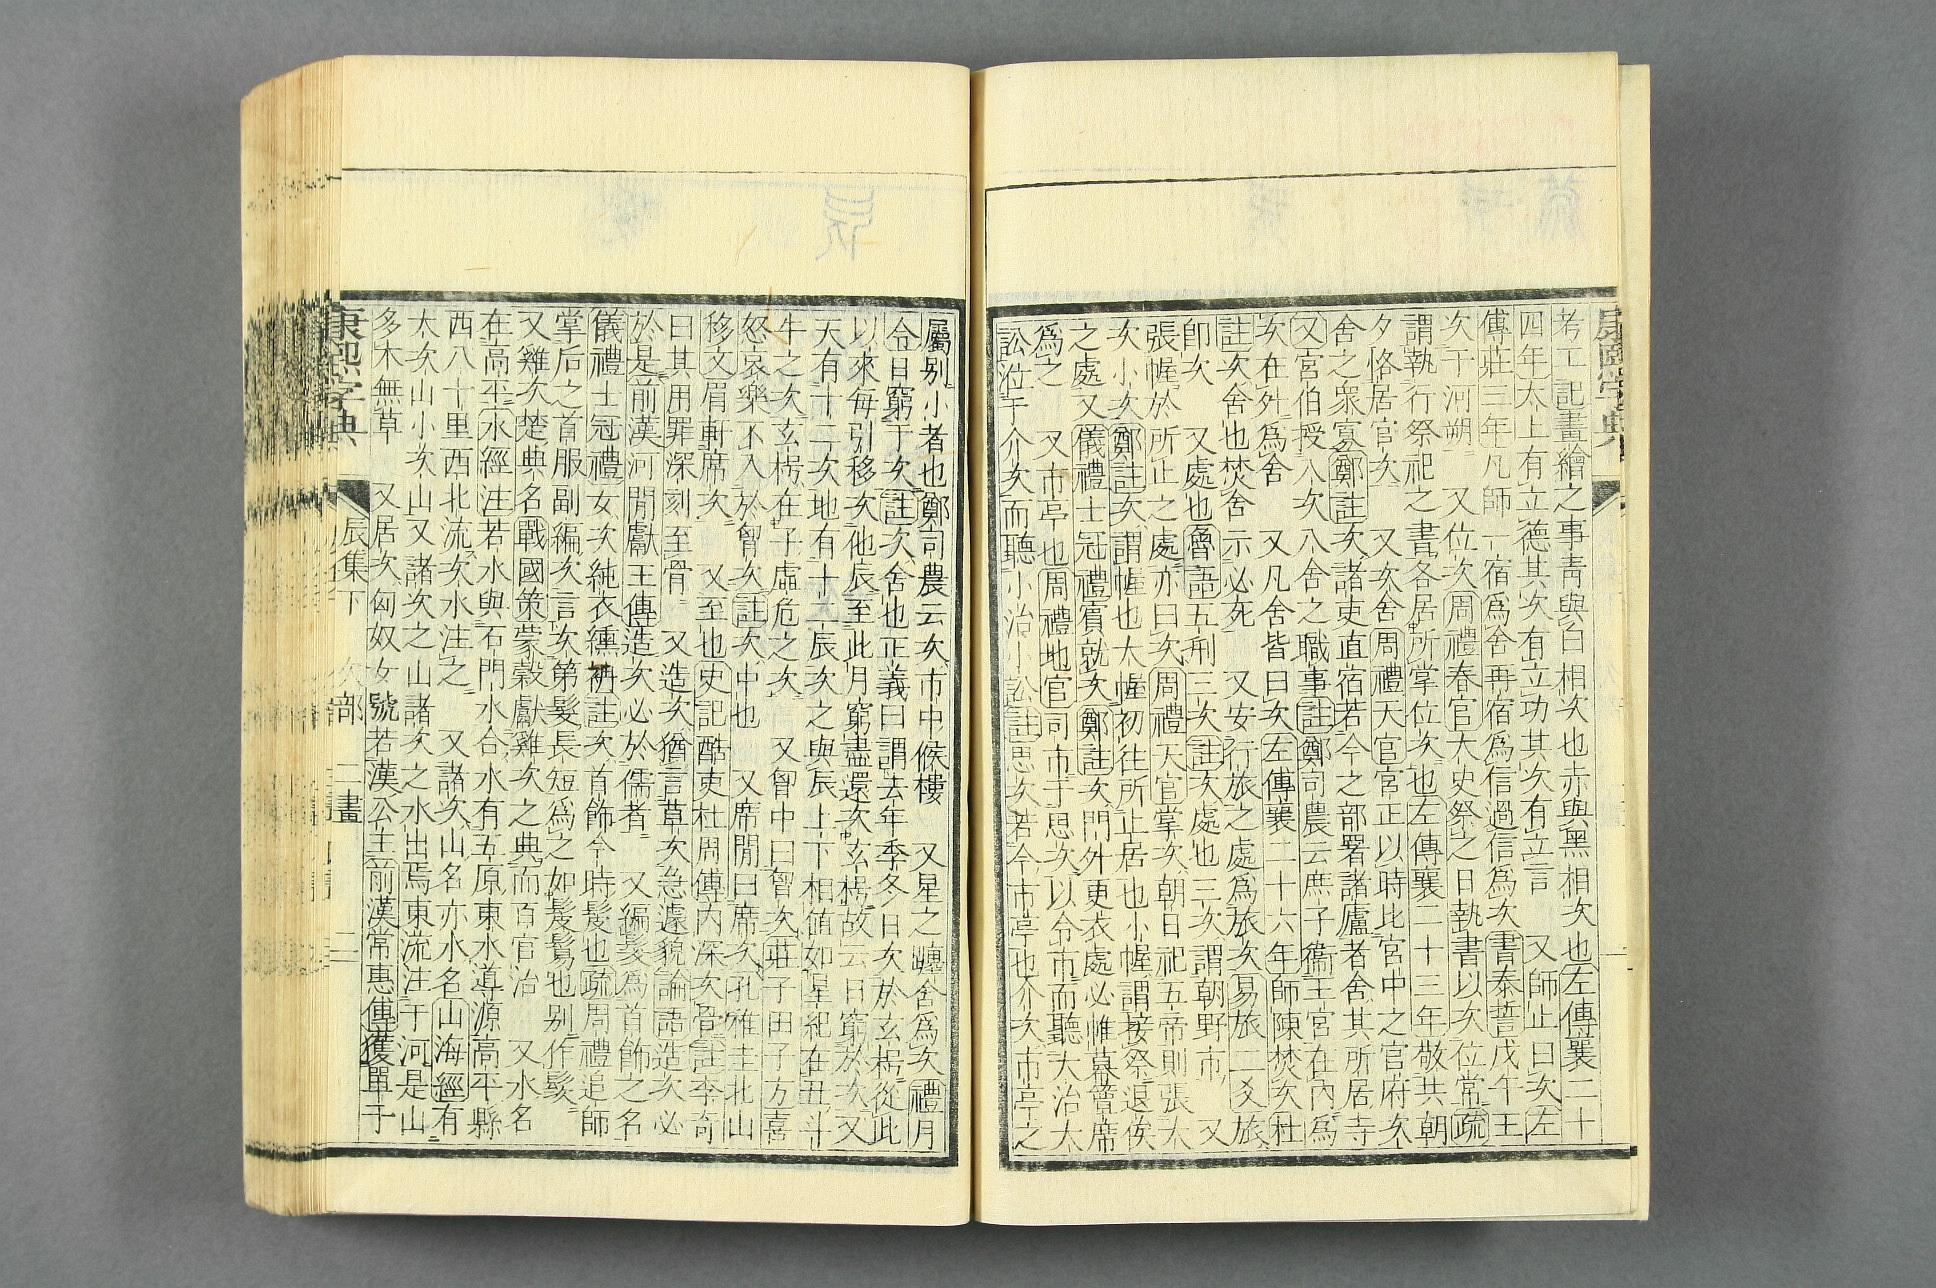 康熙字典
考工記畫繪之事青與白相次也赤與黑相次也左傳襄二十
四年太上有立德其次有立功其次有立言 又師止曰次左
傳莊三年凡師一宿爲舍再宿爲信過信爲次書泰誓戊午王
次于河朔 又位次周禮春官大史祭之日執書以次位常疏
謂執行祭祀之書各居所掌位次也左傳襄二十三年敬共朝
夕恪居官次 又次舍周禮天官宮正以時比宮中之官府次
舍之衆寡鄭註次諸吏直宿若今之部署諸廬者舍其所居寺
又宮伯授八次八舍之職事註鄭司農云庶子衞王宮在內爲
次在外爲舍 又凡舍皆曰次左傳襄二十六年師陳焚次杜
註次舍也焚舍示必死 又安行旅之處爲旅次易旅二爻旅
卽次 又處也魯語五刑三次註次處也三次謂朝野市 又
張幄於所止之處亦曰次周禮天官掌次朝日祀五帝則張大
次小次鄭註次謂幄也大幄初往所止居也小幄謂接祭退俟
之處又儀禮士冠禮賓就次鄭註次門外更衣處必帷幕簟席
爲之 又市亭也周禮地官司市于思次以令市而聽大治大
訟涖于介次而聽小治小訟註思次若今市亭也介次市亭之
屬別小者也鄭司農云次市中候樓 又星之躔舍爲次禮月
令日窮于次註次舍也正義曰謂去年季冬日次於玄枵從此
以來每引移次他辰至此月窮盡還次玄枵故云日窮於次又
天有十二次地有十二辰次之與辰上下相値如星紀在丑斗
牛之次玄枵在子虛危之次 又胷中曰胷次莊子田子方喜
怒哀樂不入於胷次註次中也 又席閒曰席次孔稚圭北山
移文眉軒席次 又至也史記酷吏杜周傳內深次骨註李奇
曰其用罪深刻至骨 又造次猶言草次急遽貌論語造次必
於是前漢河閒獻王傳造次必於儒者 又編髮為首飾之名
儀禮士冠禮女次純衣纁袡註次首飾今時髲也疏周禮追師
掌后之首服副編次言次第髮長短爲之如髮鬄也別作髲
又雞次楚典名戰國策蒙穀獻雞次之典而百官治 又水名
在高平水經注若水與石門水合水有五原東水導源高平縣
西八十里西北流次水注之 又諸次山名亦水名山海經有
大次山小次山又諸次之山諸次之水出焉東流注于河是山
多木無草 又居次匈奴女號若漢公主前漢常惠傳獲單于
康熙字典 辰集下 欠部 二畫 二